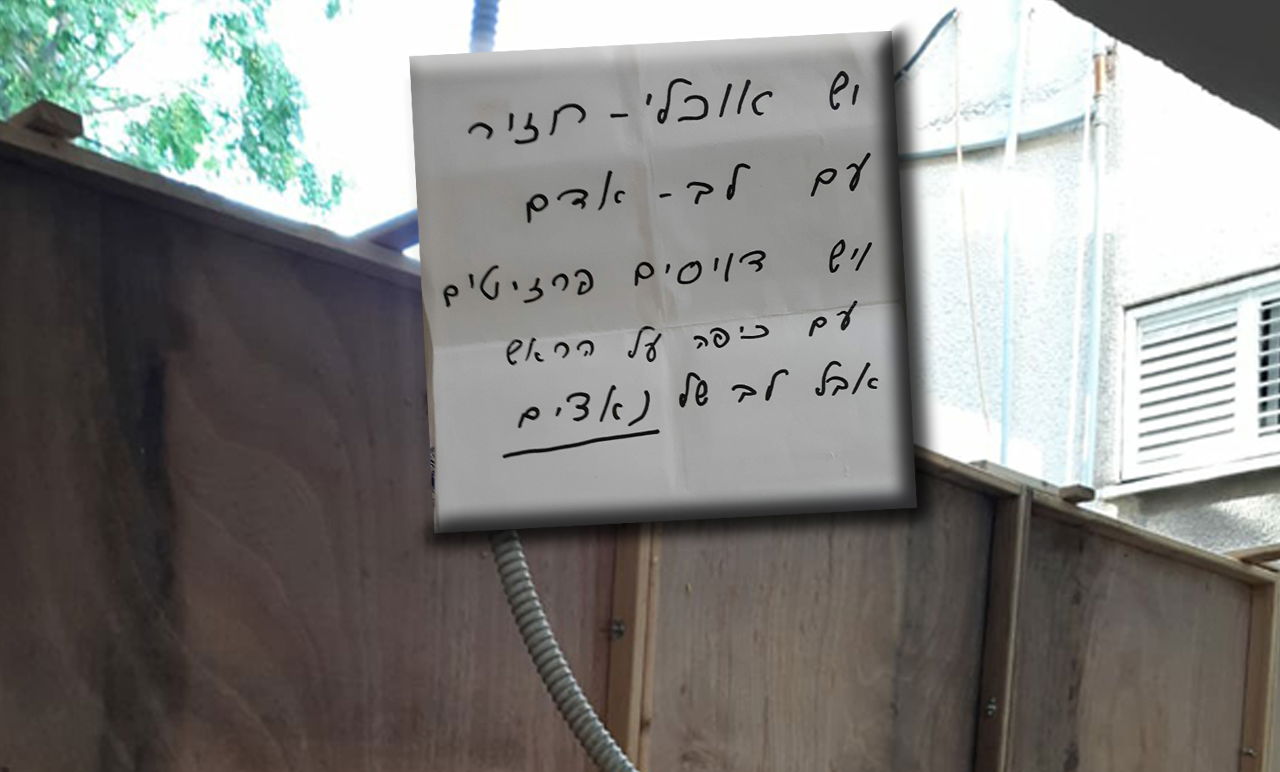 יש אוכלי - חזיר
עם לב - אדם
ויש דוסים פרזיטים
עם כיפה על הראש
אבל לב של נאצים